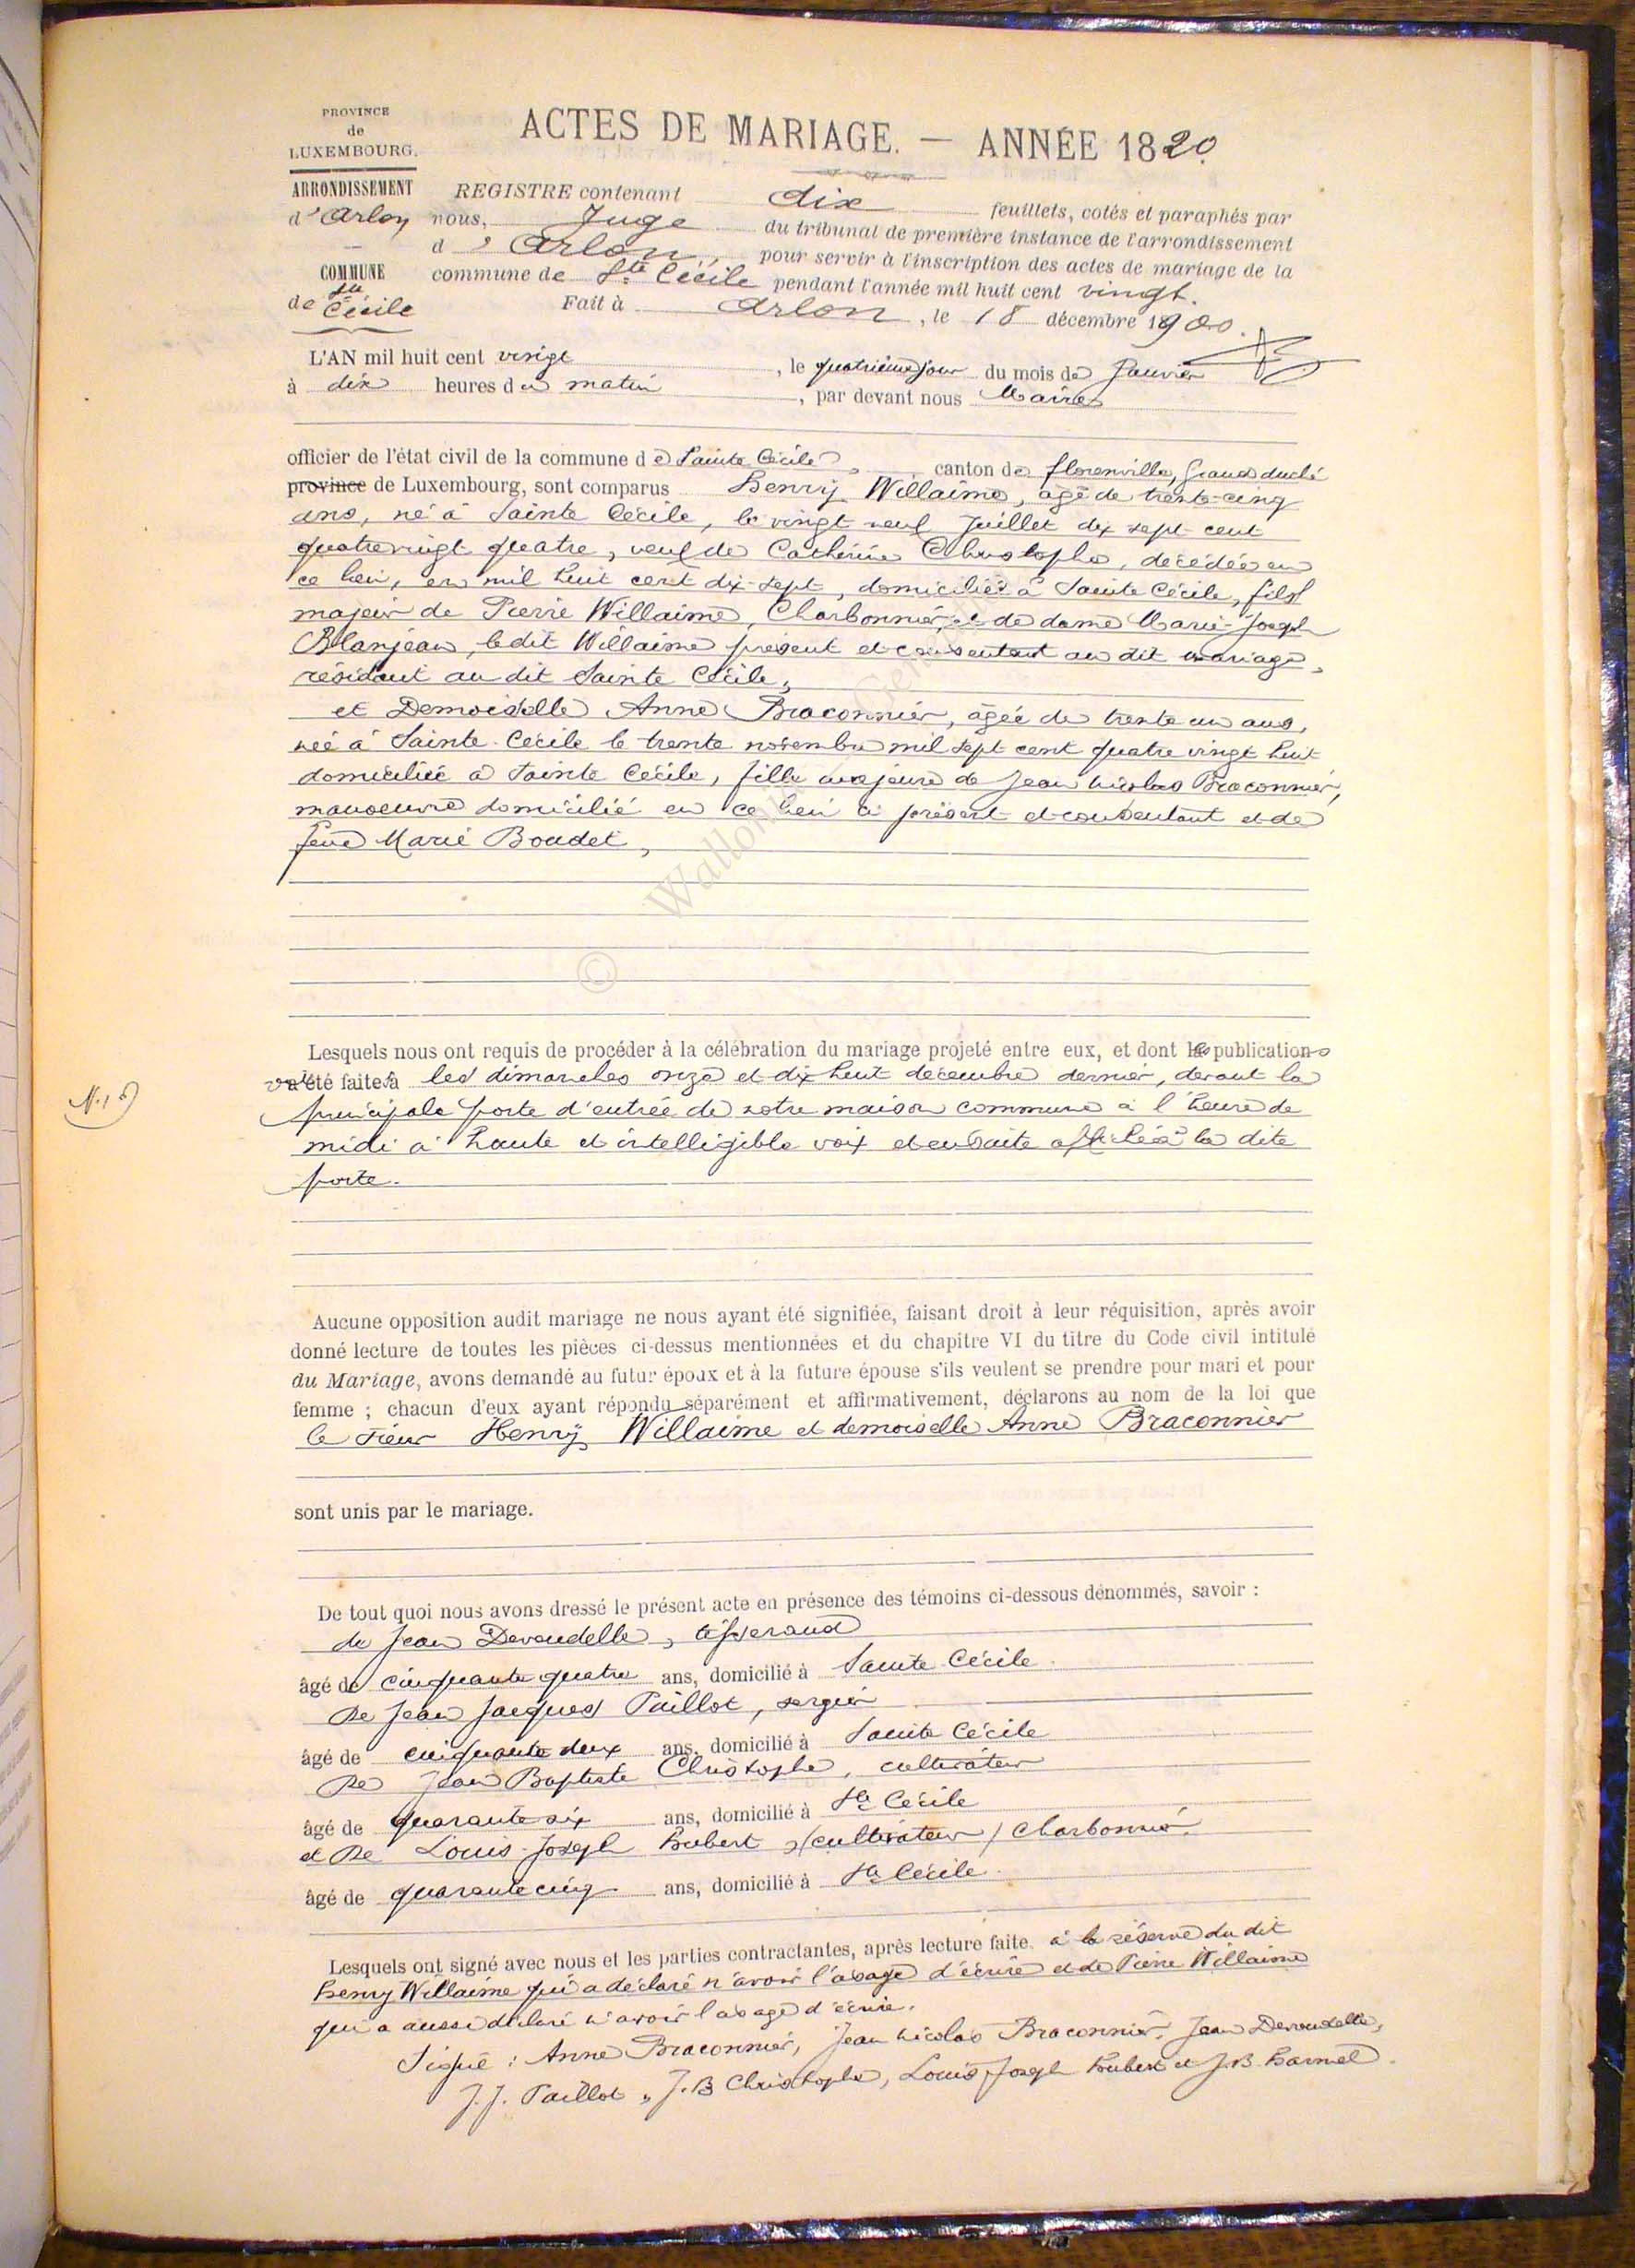 PROVINCE
de
LUXEMBOURG.
ARRONDISSEMENT
d'Arlon
COMMUNE
de Ste Cécile
ACTES DE MARIAGE. — ANNÉE 1820.
REGISTRE contenant dix feuillets, cotés et paraphés par
nous, Juge du tribunal de première instance de l'arrondissement
d'Arlon, pour servir à l'inscription des actes de mariage de la
commune de Ste Cécile pendant l'année mil huit cent vingt.
Fait à Arlon, le 18 décembre 1900.
L'AN mil huit cent vingt, le quatrième jour du mois de Janvier
à dix heures du matin, par devant nous Maire
officier de l'état civil de la commune de Sainte Cécile, canton de florenville, grand duché
province de Luxembourg, sont comparus Henry Willaime, âgé de trente-cinq
ans, né à Sainte Cécile, le vingt neuf Juillet dix sept cent
quatrevingt quatre, veuf de Catherine Christophe, décédée en
ce lieu, en mil huit cent dix-sept, domicilié à Sainte Cécile, fils
majeur de Pierre Willaime, Charbonnier, et de dame Marie-Joseph
Blanjean, le dit Willaime présent et consentant au dit mariage,
résidant au dit Sainte Cécile,
et Demoiselle Anne Braconnier, âgée de trente un ans,
née à Sainte-Cécile le trente novembre mil sept cent quatre vingt huit
domiciliée à Sainte Cécile, fille majeure de Jean Nicolas Braconnier,
manoeuvre domicilié en ce lieu ci présent et consentant et de
feue Marie Boudet,
Wallonie
©
Lesquels nous ont requis de procéder à la célébration du mariage projeté entre eux, et dont les publications
ont été faites à les dimanches onze et dix huit décembre dernier, devant la
principale porte d'entrée de notre maison commune à l'heure de
midi à haute et intelligible voix et ensuite affichée à la dite
porte.
N. 1
Aucune opposition audit mariage ne nous ayant été signifiée, faisant droit à leur réquisition, après avoir
donné lecture de toutes les pièces ci-dessus mentionnées et du chapitre VI du titre du Code civil intitulé
du Mariage, avons demandé au futur époux et à la future épouse s'ils veulent se prendre pour mari et pour
femme ; chacun d'eux ayant répondu séparément et affirmativement, déclarons au nom de la loi que
le sieur Henry Willaime et demoiselle Anne Braconnier
sont unis par le mariage.
De tout quoi nous avons dressé le présent acte en présence des témoins ci-dessous dénommés, savoir :
de Jean Devoudelle, tisserand
âgé de cinquante quatre ans, domicilié à Sainte Cécile
De Jean Jacques Paillot, sergier
âgé de cinquante deux ans, domicilié à Sainte Cécile
De Jean Baptiste Christophe, cultivateur
âgé de quarante six ans, domicilié à Ste Cécile
et De Louis-Joseph Hubert, (cultivateur) Charbonnier.
âgé de quarante cinq ans, domicilié à Ste Cécile.
Lesquels ont signé avec nous et les parties contractantes, après lecture faite. à la réserve du dit
henry Willaime qui a déclaré n'avoir l'usage d'écrire et de Pierre Willaime
qui a aussi déclaré n'avoir l'usage d'écrire.
Signé : Anne Braconnier, Jean Nicolas Braconnier, Jean Devoudelle,
J. J. Paillot, J. B Christophe, Louis Joseph Hubert et J. B. Hamel.